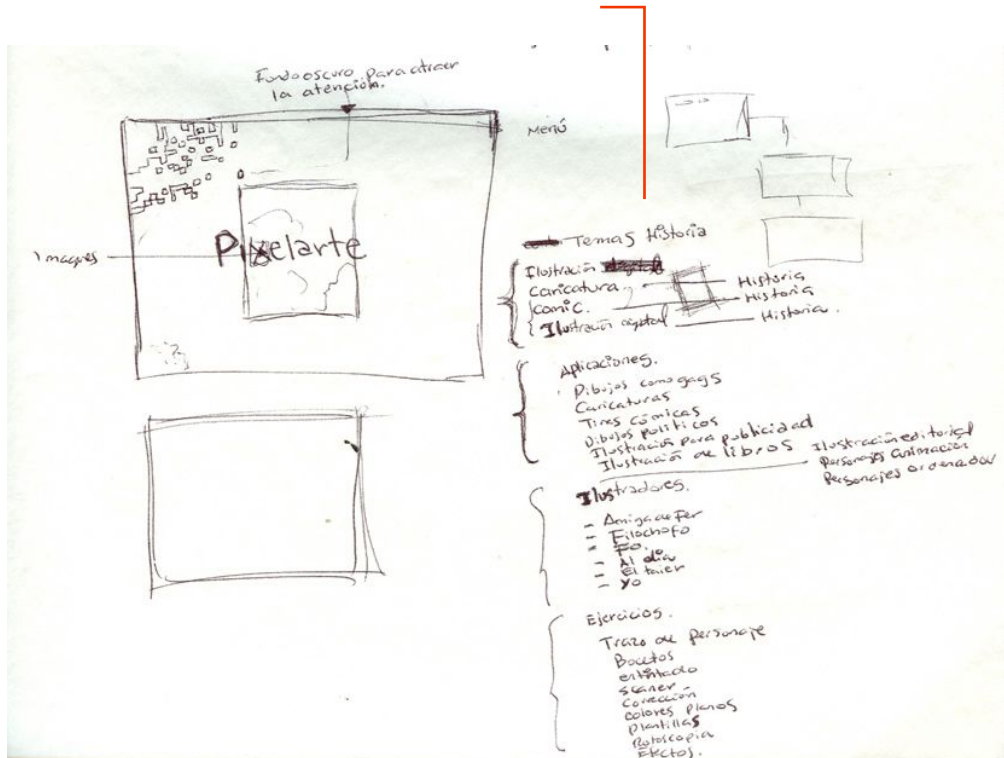 Fondo oscuro para atraer
la atención.
Menú
Imagnes
Pixelarte
Temas Historia
Ilustración
Caricatura Historia
comic. Historia
Ilustración digital Historia.
Aplicaciones.
Dibujos como gags
Caricaturas
Tiras cómicas
Dibujos políticos
Ilustración para publicidad
Ilustración de libros Ilustración editorial
Personajes animación
Personajes ordenador
Ilustradores.
- Amiga de Fer
- Filochofo
- Fo.
- Al día
- El
- Yo
Ejercicios.
Trazo de personaje
Bocetos
entintado
scaner
Corección
colores planos
Plantillas
Rotoscopia
Efectos.